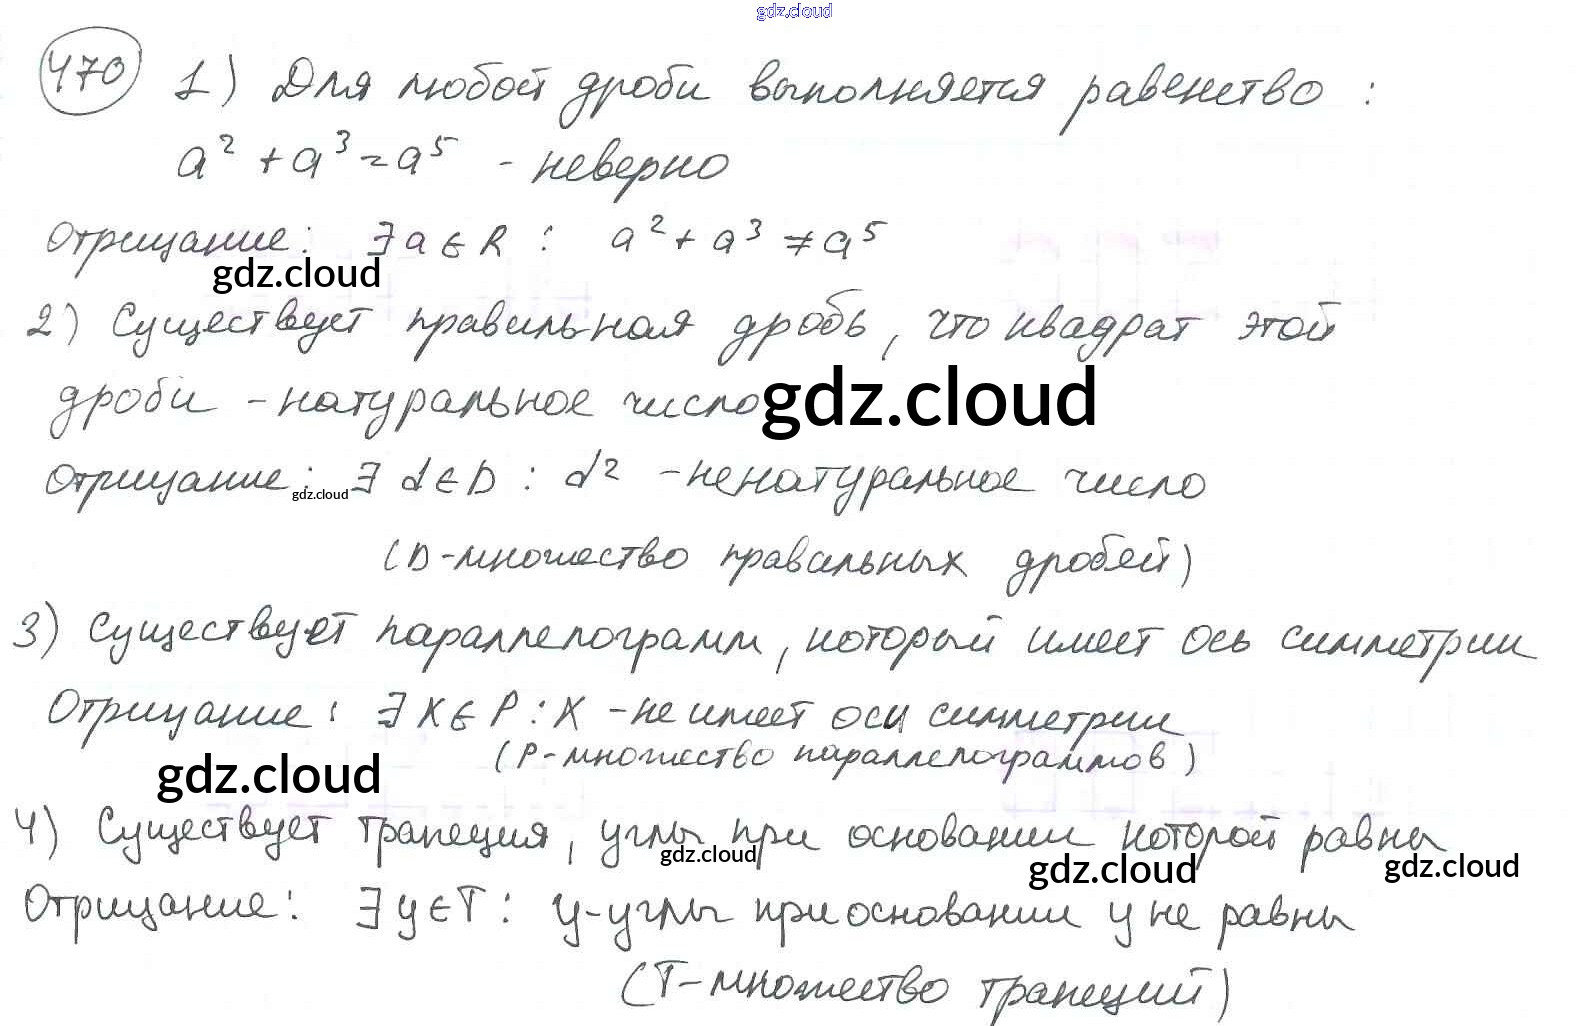 gdz.cloud
470 1) Для любой дроби выполняется равенство :
a² + a³ = a⁵ - неверно
Отрицание: ∃ a ∈ R : a² + a³ ≠ a⁵
gdz.cloud
2) Существует правильная дробь, что квадрат этой
дроби - натуральное число gdz.cloud
Отрицание: gdz.cloud ∃ d ∈ D : d² - ненатуральное число
(D - множество правильных дробей)
3) Существует параллелограмм, который имеет ось симметрии
Отрицание: ∃ X ∈ P : X - не имеет оси симметрии
(P - множество параллелограммов)
gdz.cloud
4) Существует трапеция, углы при основании которой равны
gdz.cloud gdz.cloud gdz.cloud
Отрицание: ∃ y ∈ T : y - углы при основании y не равны
(T - множество трапеций)